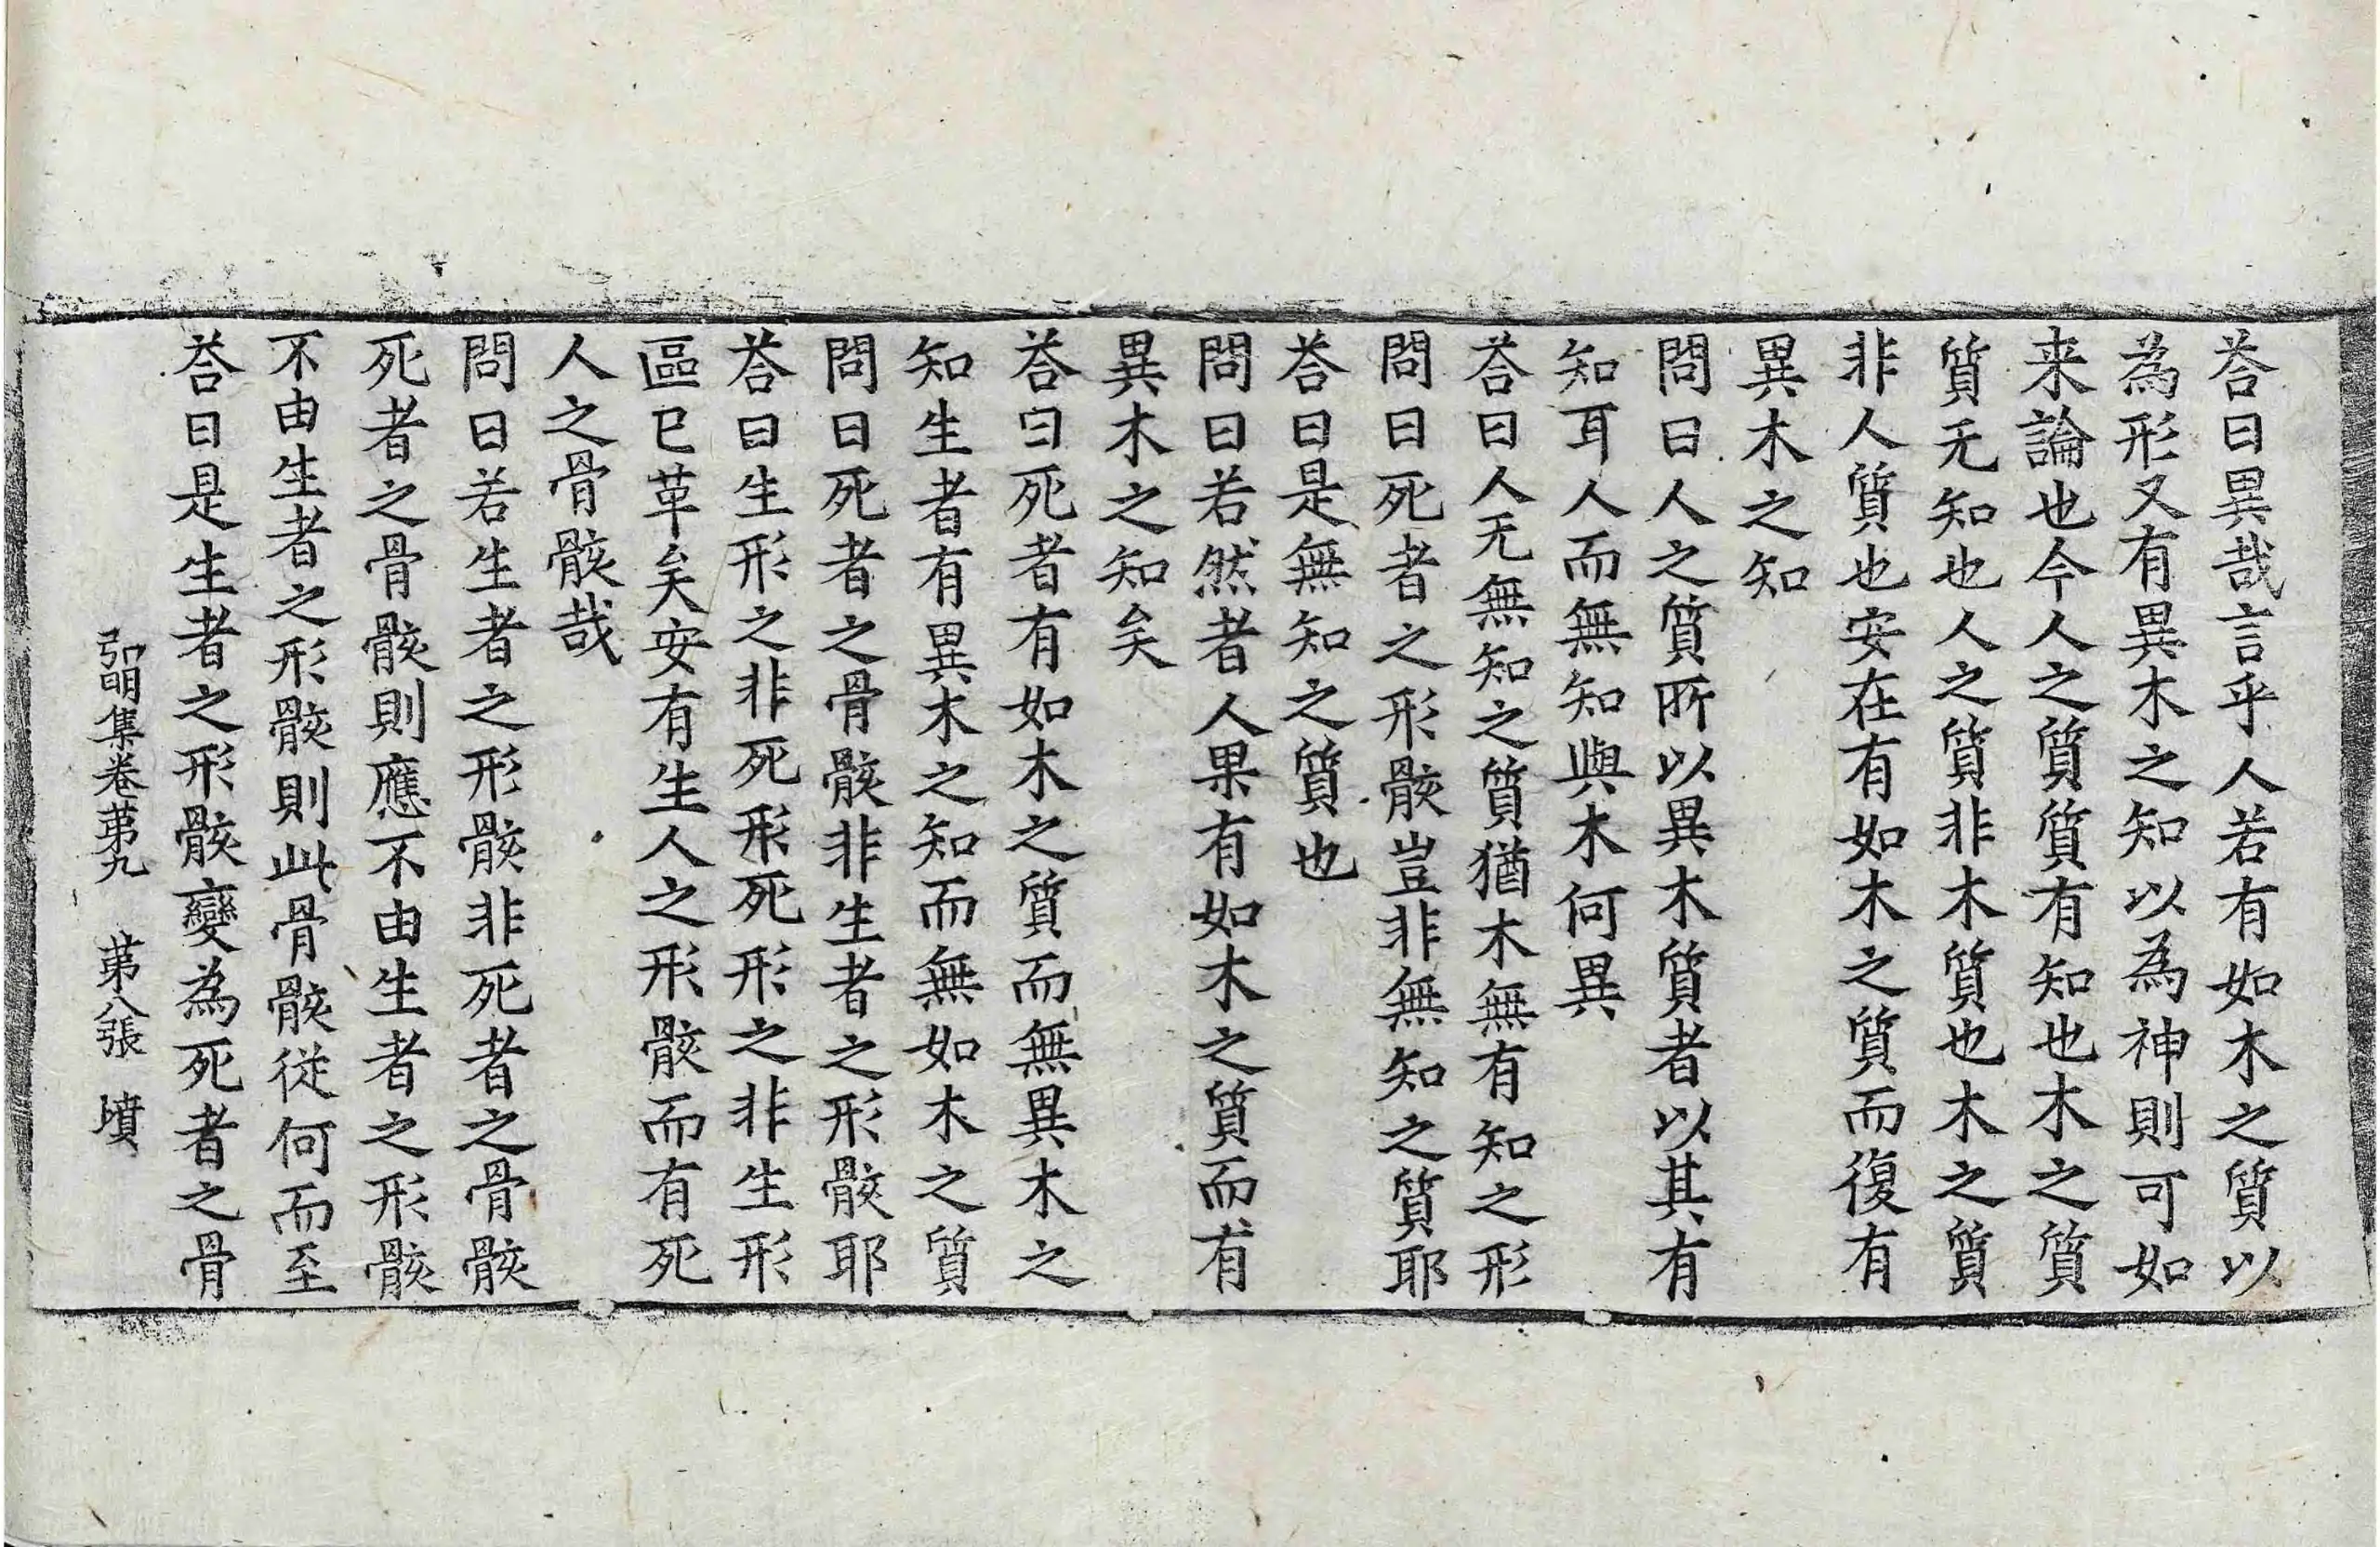 荅曰異哉言乎人若有如木之質以
為形又有異木之知以為神則可如
来論也今人之質質有知也木之質
質无知也人之質非木質也木之質
非人質也安在有如木之質而復有
異木之知
問曰人之質所以異木質者以其有
知耳人而無知與木何異
荅曰人无無知之質猶木無有知之形
問曰死者之形骸豈非無知之質耶
荅曰是無知之質也
問曰若然者人果有如木之質而有
異木之知矣
荅曰死者有如木之質而無異木之
知生者有異木之知而無如木之質
問曰死者之骨骸非生者之形骸耶
荅曰生形之非死形死形之非生形
區已革矣安有生人之形骸而有死
人之骨骸哉
問曰若生者之形骸非死者之骨骸
死者之骨骸則應不由生者之形骸
不由生者之形骸則此骨骸從何而至
荅曰是生者之形骸變為死者之骨
弘明集卷苐九 苐八張 墳